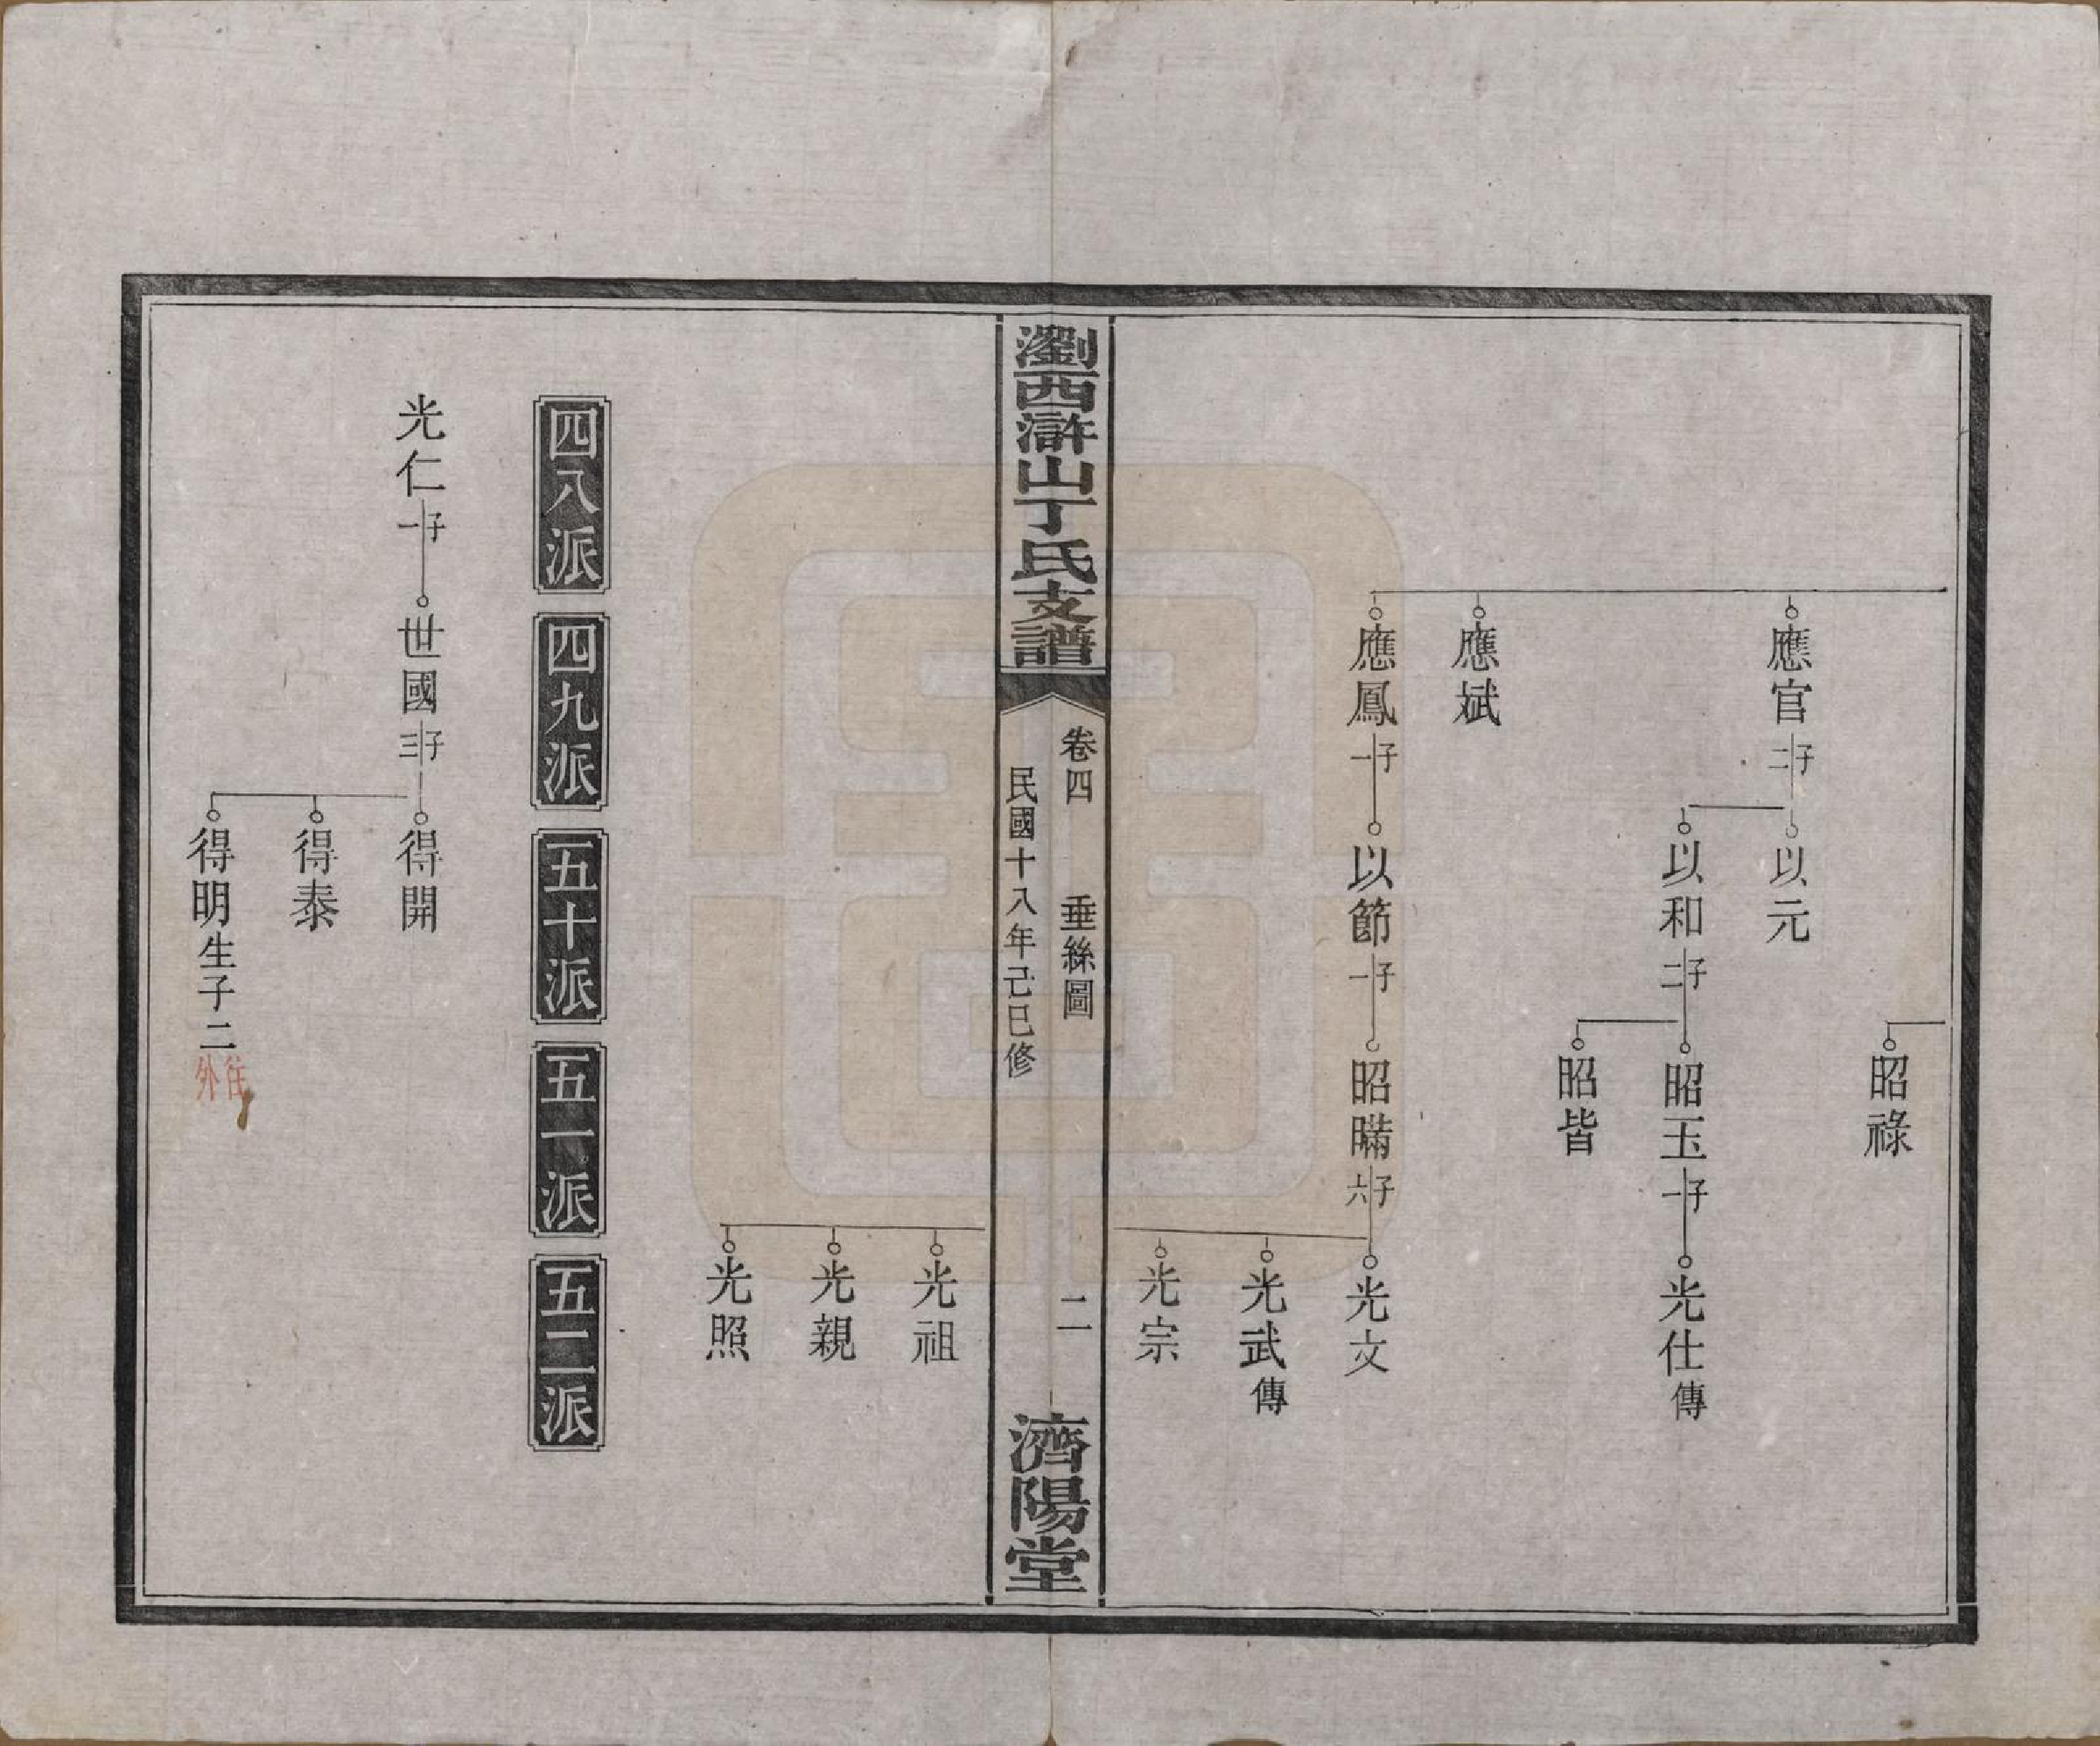 昭祿
應官 子二 以元
以和 子二 昭玉 子一 光仕傳
昭皆
應斌
應鳳 子一 以節 子一 昭暪 子六 光文
光武傳
光宗
瀏西滸山丁氏支譜 卷四 垂絲圖 二 濟陽堂
民國十八年己巳修
光祖
光親
光照
四八派 四九派 五十派 五一派 五二派
光仁 子一 世國 子三 得開
得泰
得明生子二 往外